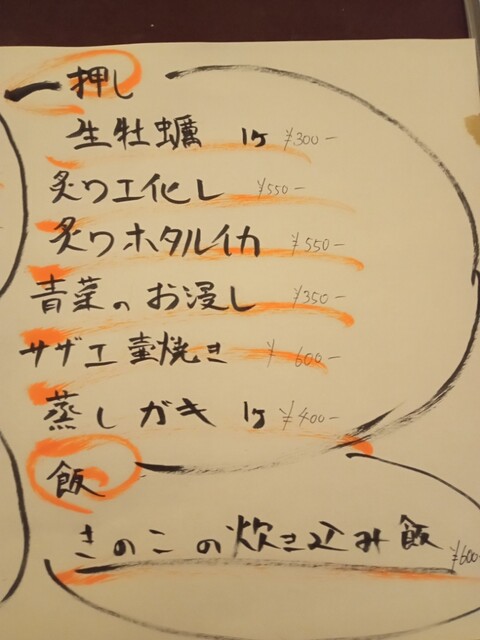 一押し
生牡蠣 1ケ ¥300-
炙りエイヒレ ¥550-
炙りホタルイカ ¥550-
青菜のお浸し ¥350-
サザエ壷焼き ¥600-
蒸しガキ 1ケ ¥400-
飯
きのこの炊き込み飯 ¥600-